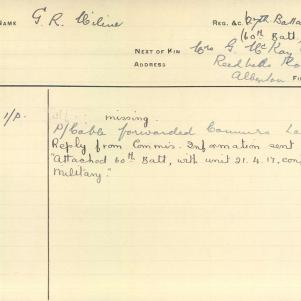 NAME G. R. Milne REG. &C. 27th Batta
60th Batt
NEXT OF KIN Mrs G. McKay
ADDRESS Reedbeds Roa
Alberton FI
1/P. missing.
P/Cable forwarded Commrs Lo
Reply from Commis. Information sent
"Attached 60th Batt, with unit 21.4.17, con
Military."